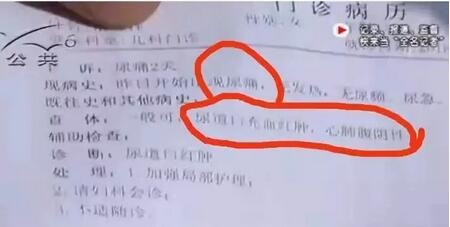 门诊病历
记录、报道、监督
快来当“全名记者”
公共
科室:儿科门诊
诉:尿痛2天
现病史:昨日开始出现尿痛,无发热,无尿频、尿急
既往史和其他病史:
查体:一般可,尿道口充血红肿,心肺腹阴性
辅助检查:
诊断:尿道口红肿
处理:1.加强局部护理;
2.请妇科会诊;
3.不适随诊